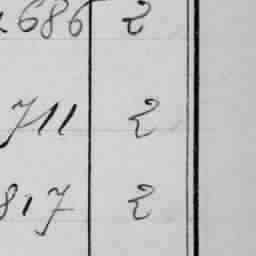 686 2
711 2
817 2